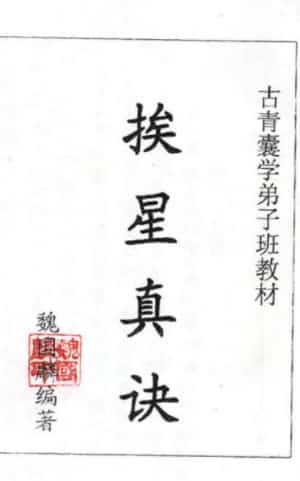 古青囊学弟子班教材
挨星真诀
魏国麟编著